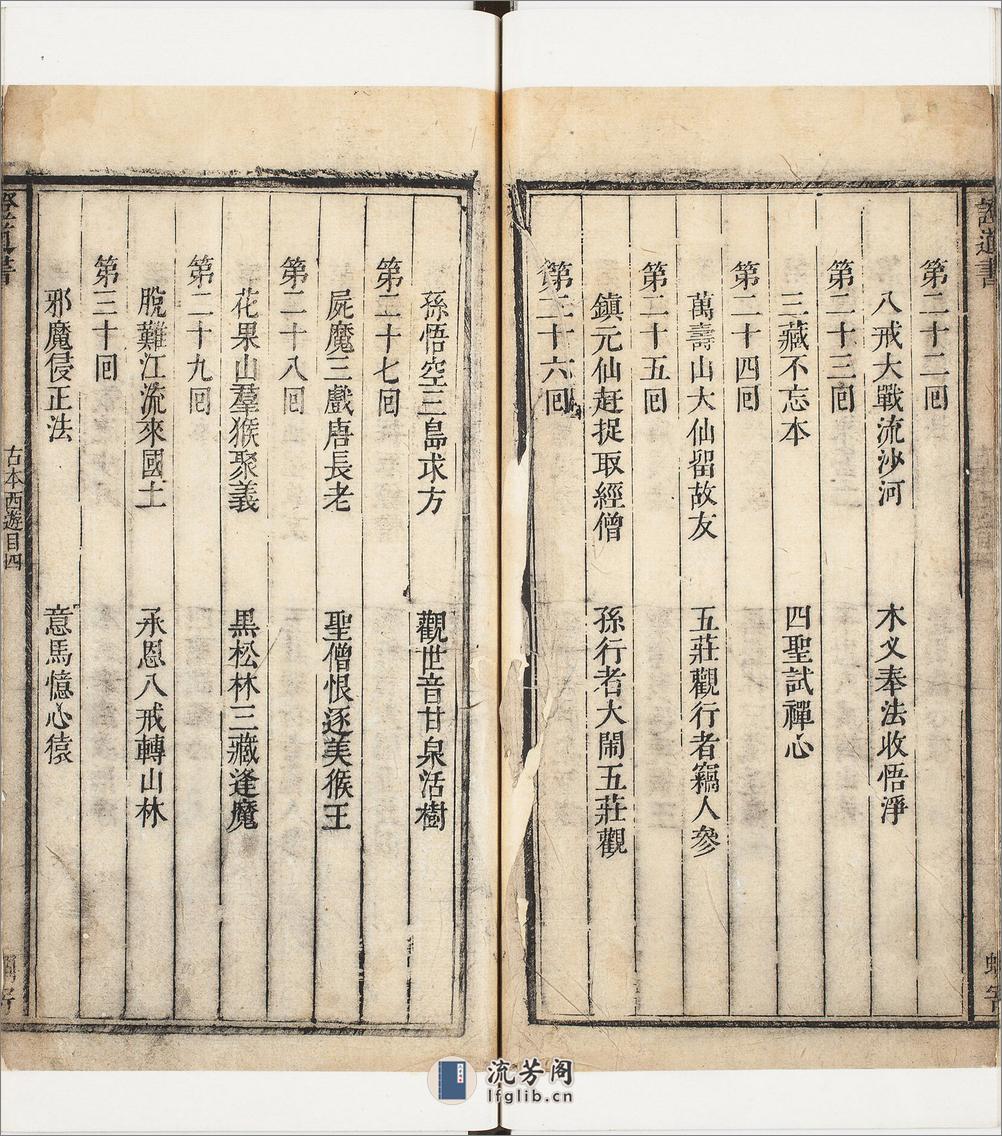 證道書
第二十二回
八戒大戰流沙河　木叉奉法收悟淨
第二十三回
三藏不忘本　四聖試禪心
第二十四回
萬壽山大仙留故友　五莊觀行者竊人參
第二十五回
鎮元仙赶捉取經僧　孫行者大鬧五莊觀
第二十六回
孫悟空三島求方　觀世音甘泉活樹
第二十七回
屍魔三戲唐長老　聖僧恨逐美猴王
第二十八回
花果山羣猴聚義　黑松林三藏逢魔
第二十九回
脫難江流來國土　承恩八戒轉山林
第三十回
邪魔侵正法　意馬憶心猿
證道書
古本西遊目四
流芳阁
lfglib.cn